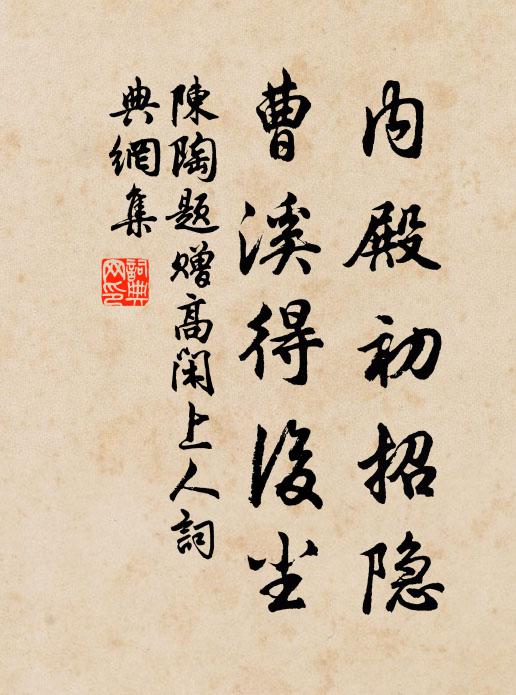 内殿初招隐
曹溪得後尘
陳陶題贈高閑上人詞
典網集
詞典
网印